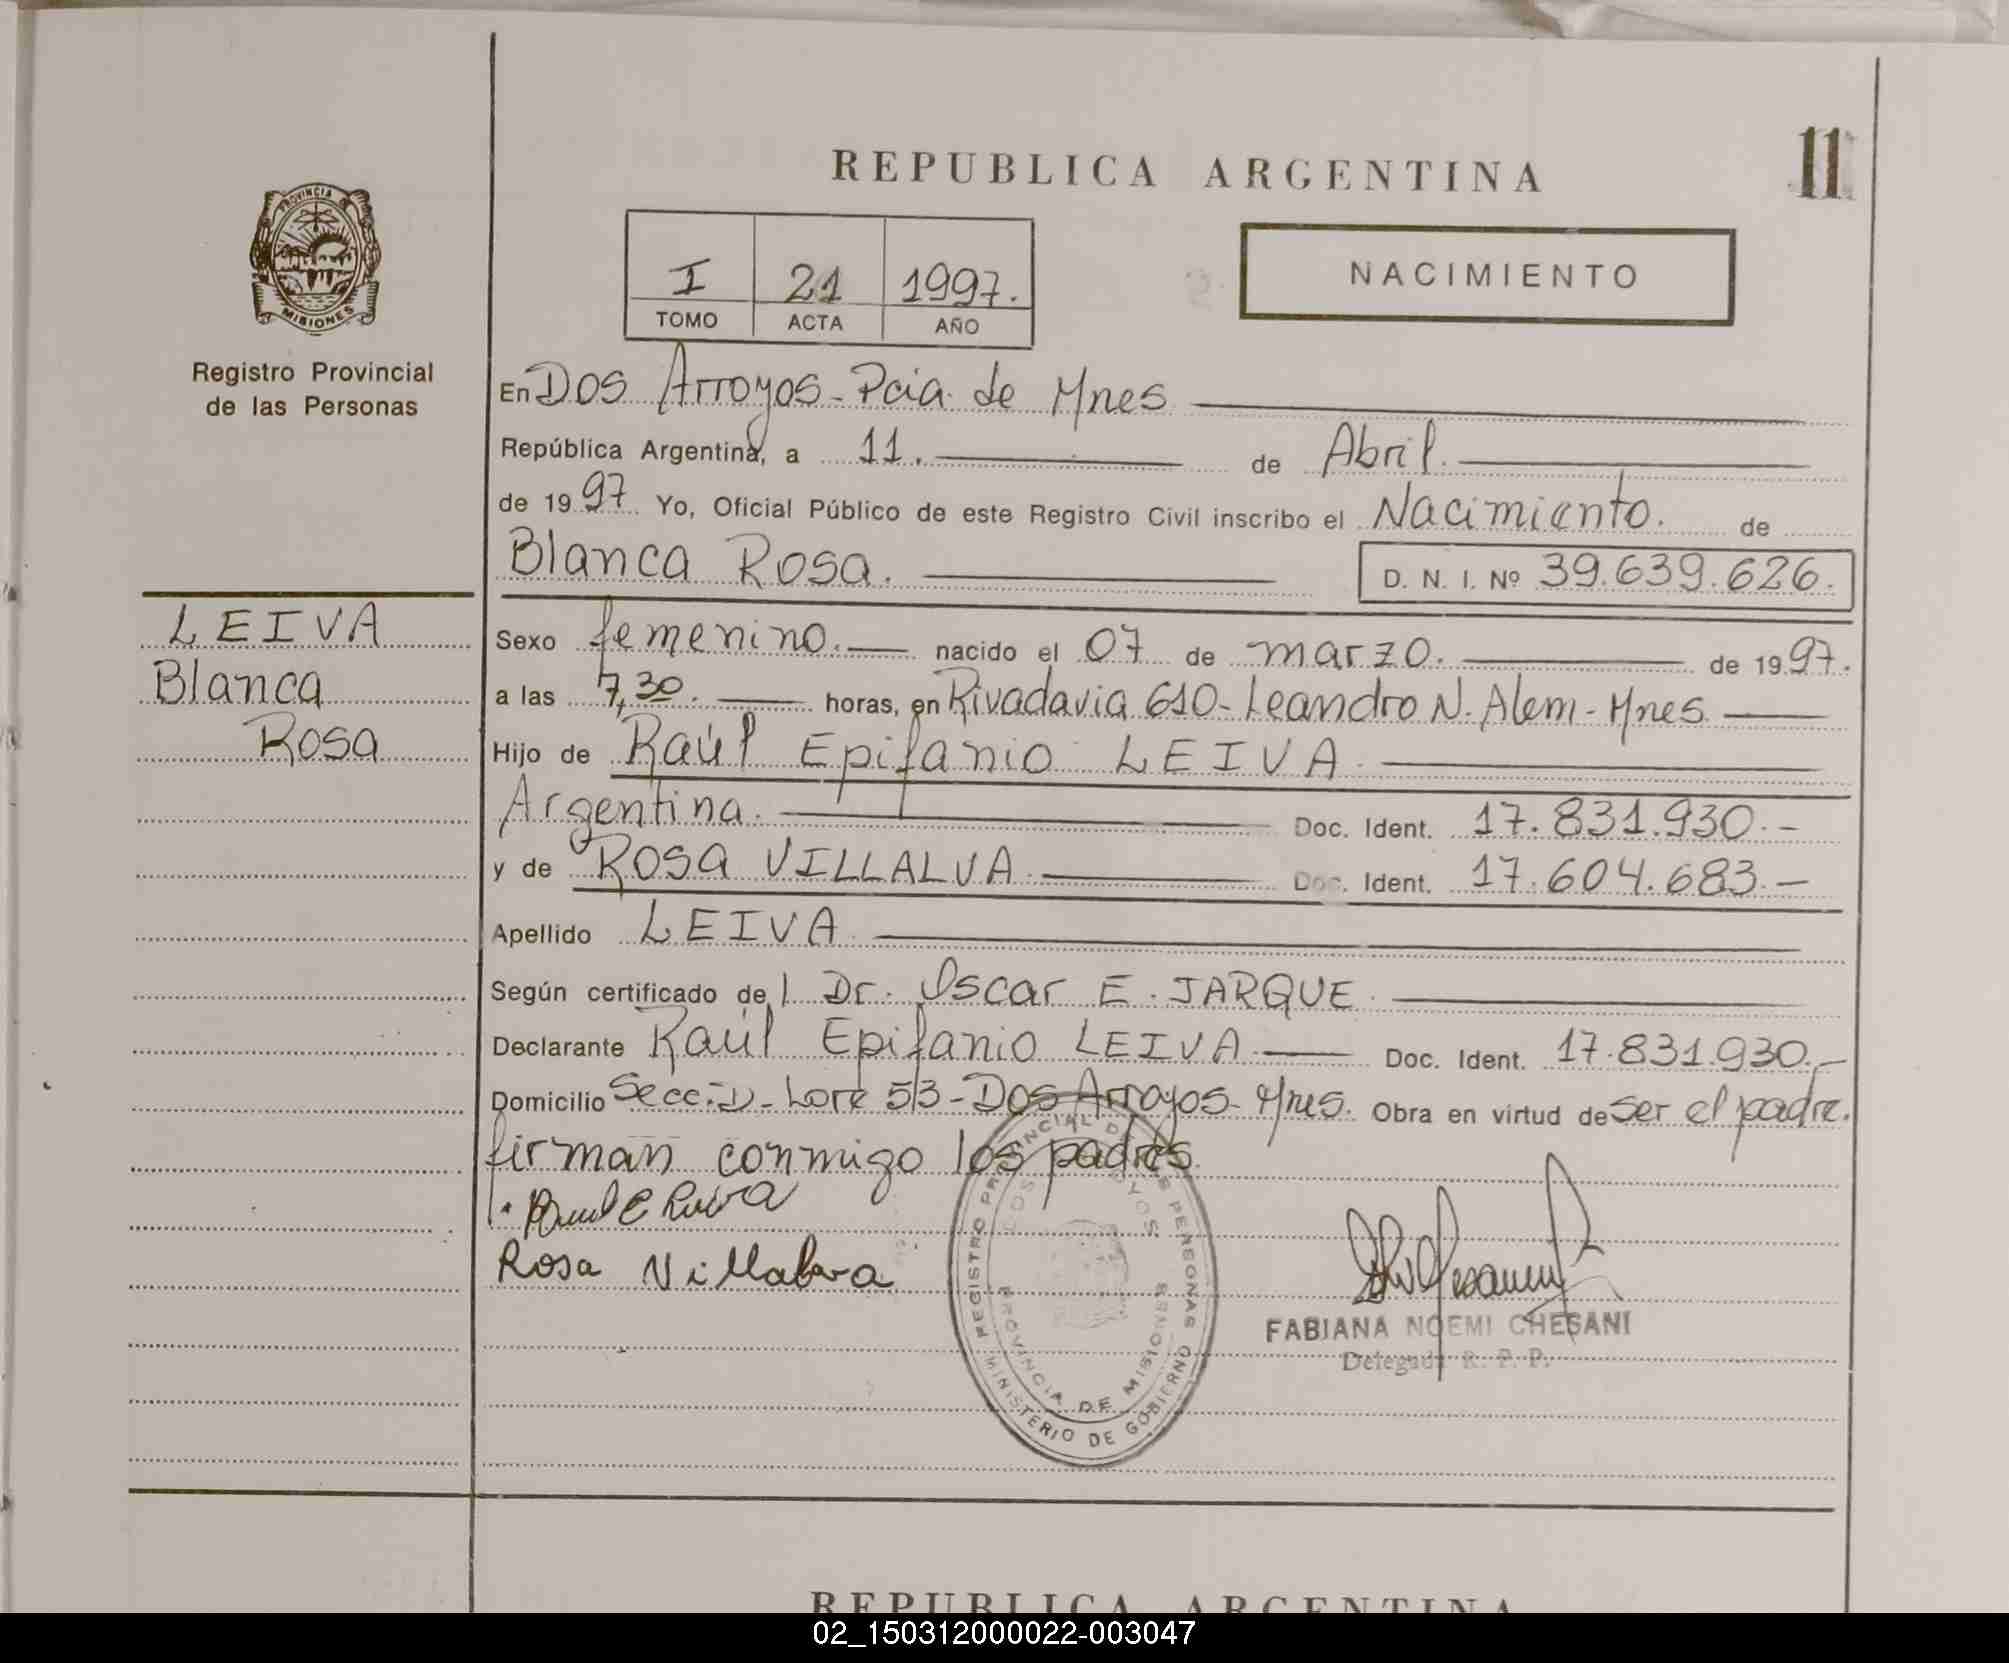 REPUBLICA ARGENTINA
11
PROVINCIA DE
MISIONES
Registro Provincial
de las Personas
I 21 1997.
TOMO ACTA AÑO
NACIMIENTO
En Dos Arroyos - Pcia. de Mnes
República Argentina, a 11. de Abril.
de 1997 Yo, Oficial Público de este Registro Civil inscribo el Nacimiento. de
Blanca Rosa. D. N. I. Nº 39.639.626.
LEIVA
Blanca
Rosa
Sexo femenino. nacido el 07 de marzo. de 1997.
a las 7,30. horas, en Rivadavia 610 - Leandro N. Alem - Mnes
Hijo de Raúl Epifanio LEIVA
Argentina. Doc. Ident. 17.831.930.-
y de Rosa VILLALVA Doc. Ident. 17.604.683.-
Apellido LEIVA
Según certificado del Dr. Oscar E. JARQUE
Declarante Raúl Epifanio LEIVA Doc. Ident. 17.831.930.-
Domicilio Secc. D - Lote 53 - Dos Arroyos - Mnes. Obra en virtud de ser el padre.
firman conmigo los padres
Rosa Villalva
REGISTRO PROVINCIAL DE LAS PERSONAS
MINISTERIO DE GOBIERNO
DOS ARROYOS
PROVINCIA DE MISIONES
FABIANA NOEMI CHESANI
Delegada R. P. P.
REPUBLICA ARGENTINA
02_150312000022-003047